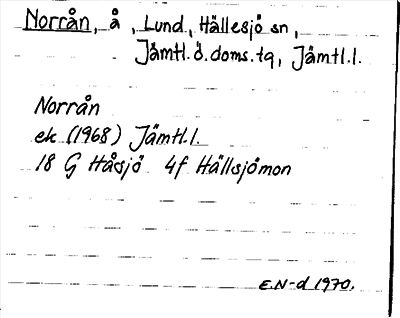 Norrån, å, Lund, Hällesjö sn,
Jämtl.ö.doms.tg, Jämtl.l.
Norrån
ek (1968) Jämtl.l.
18 G Håsjö 4f Hällsjömon
E.N-d 1970.